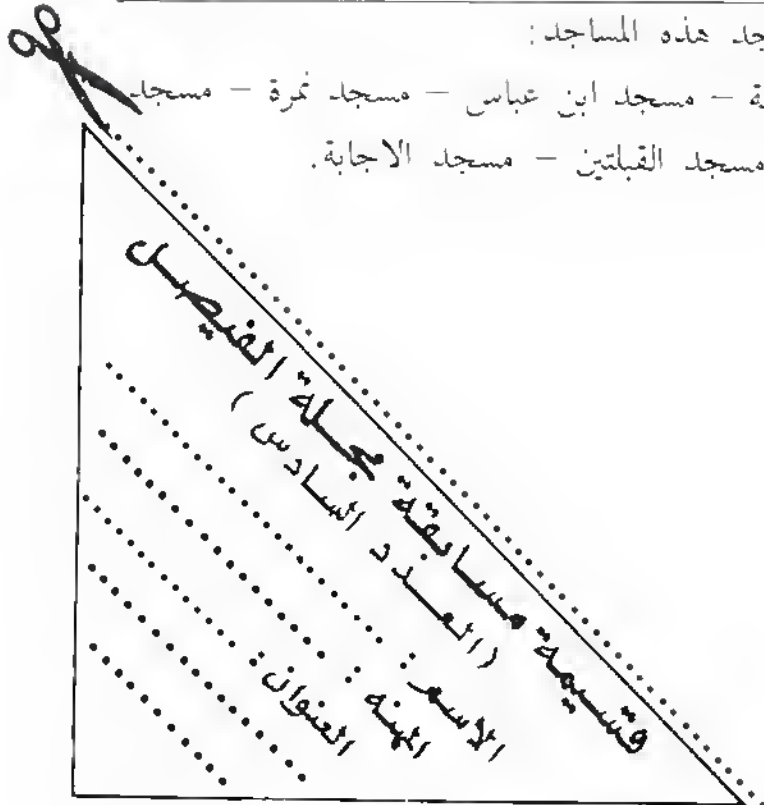 جد هذه المساجد:
ة – مسجد ابن عباس – مسجد نمرة – مسجد
مسجد القبلتين – مسجد الاجابة.
قسيمة مسابقة مجلة الفيصل
(العدد السادس)
الاسم:
المهنه:
العنوان: